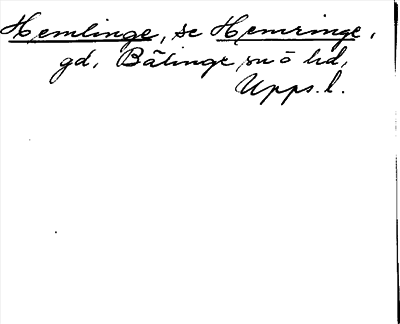 Hemlinge, se Hemringe,
gd, Bälinge sn o hd,
Upps. l.